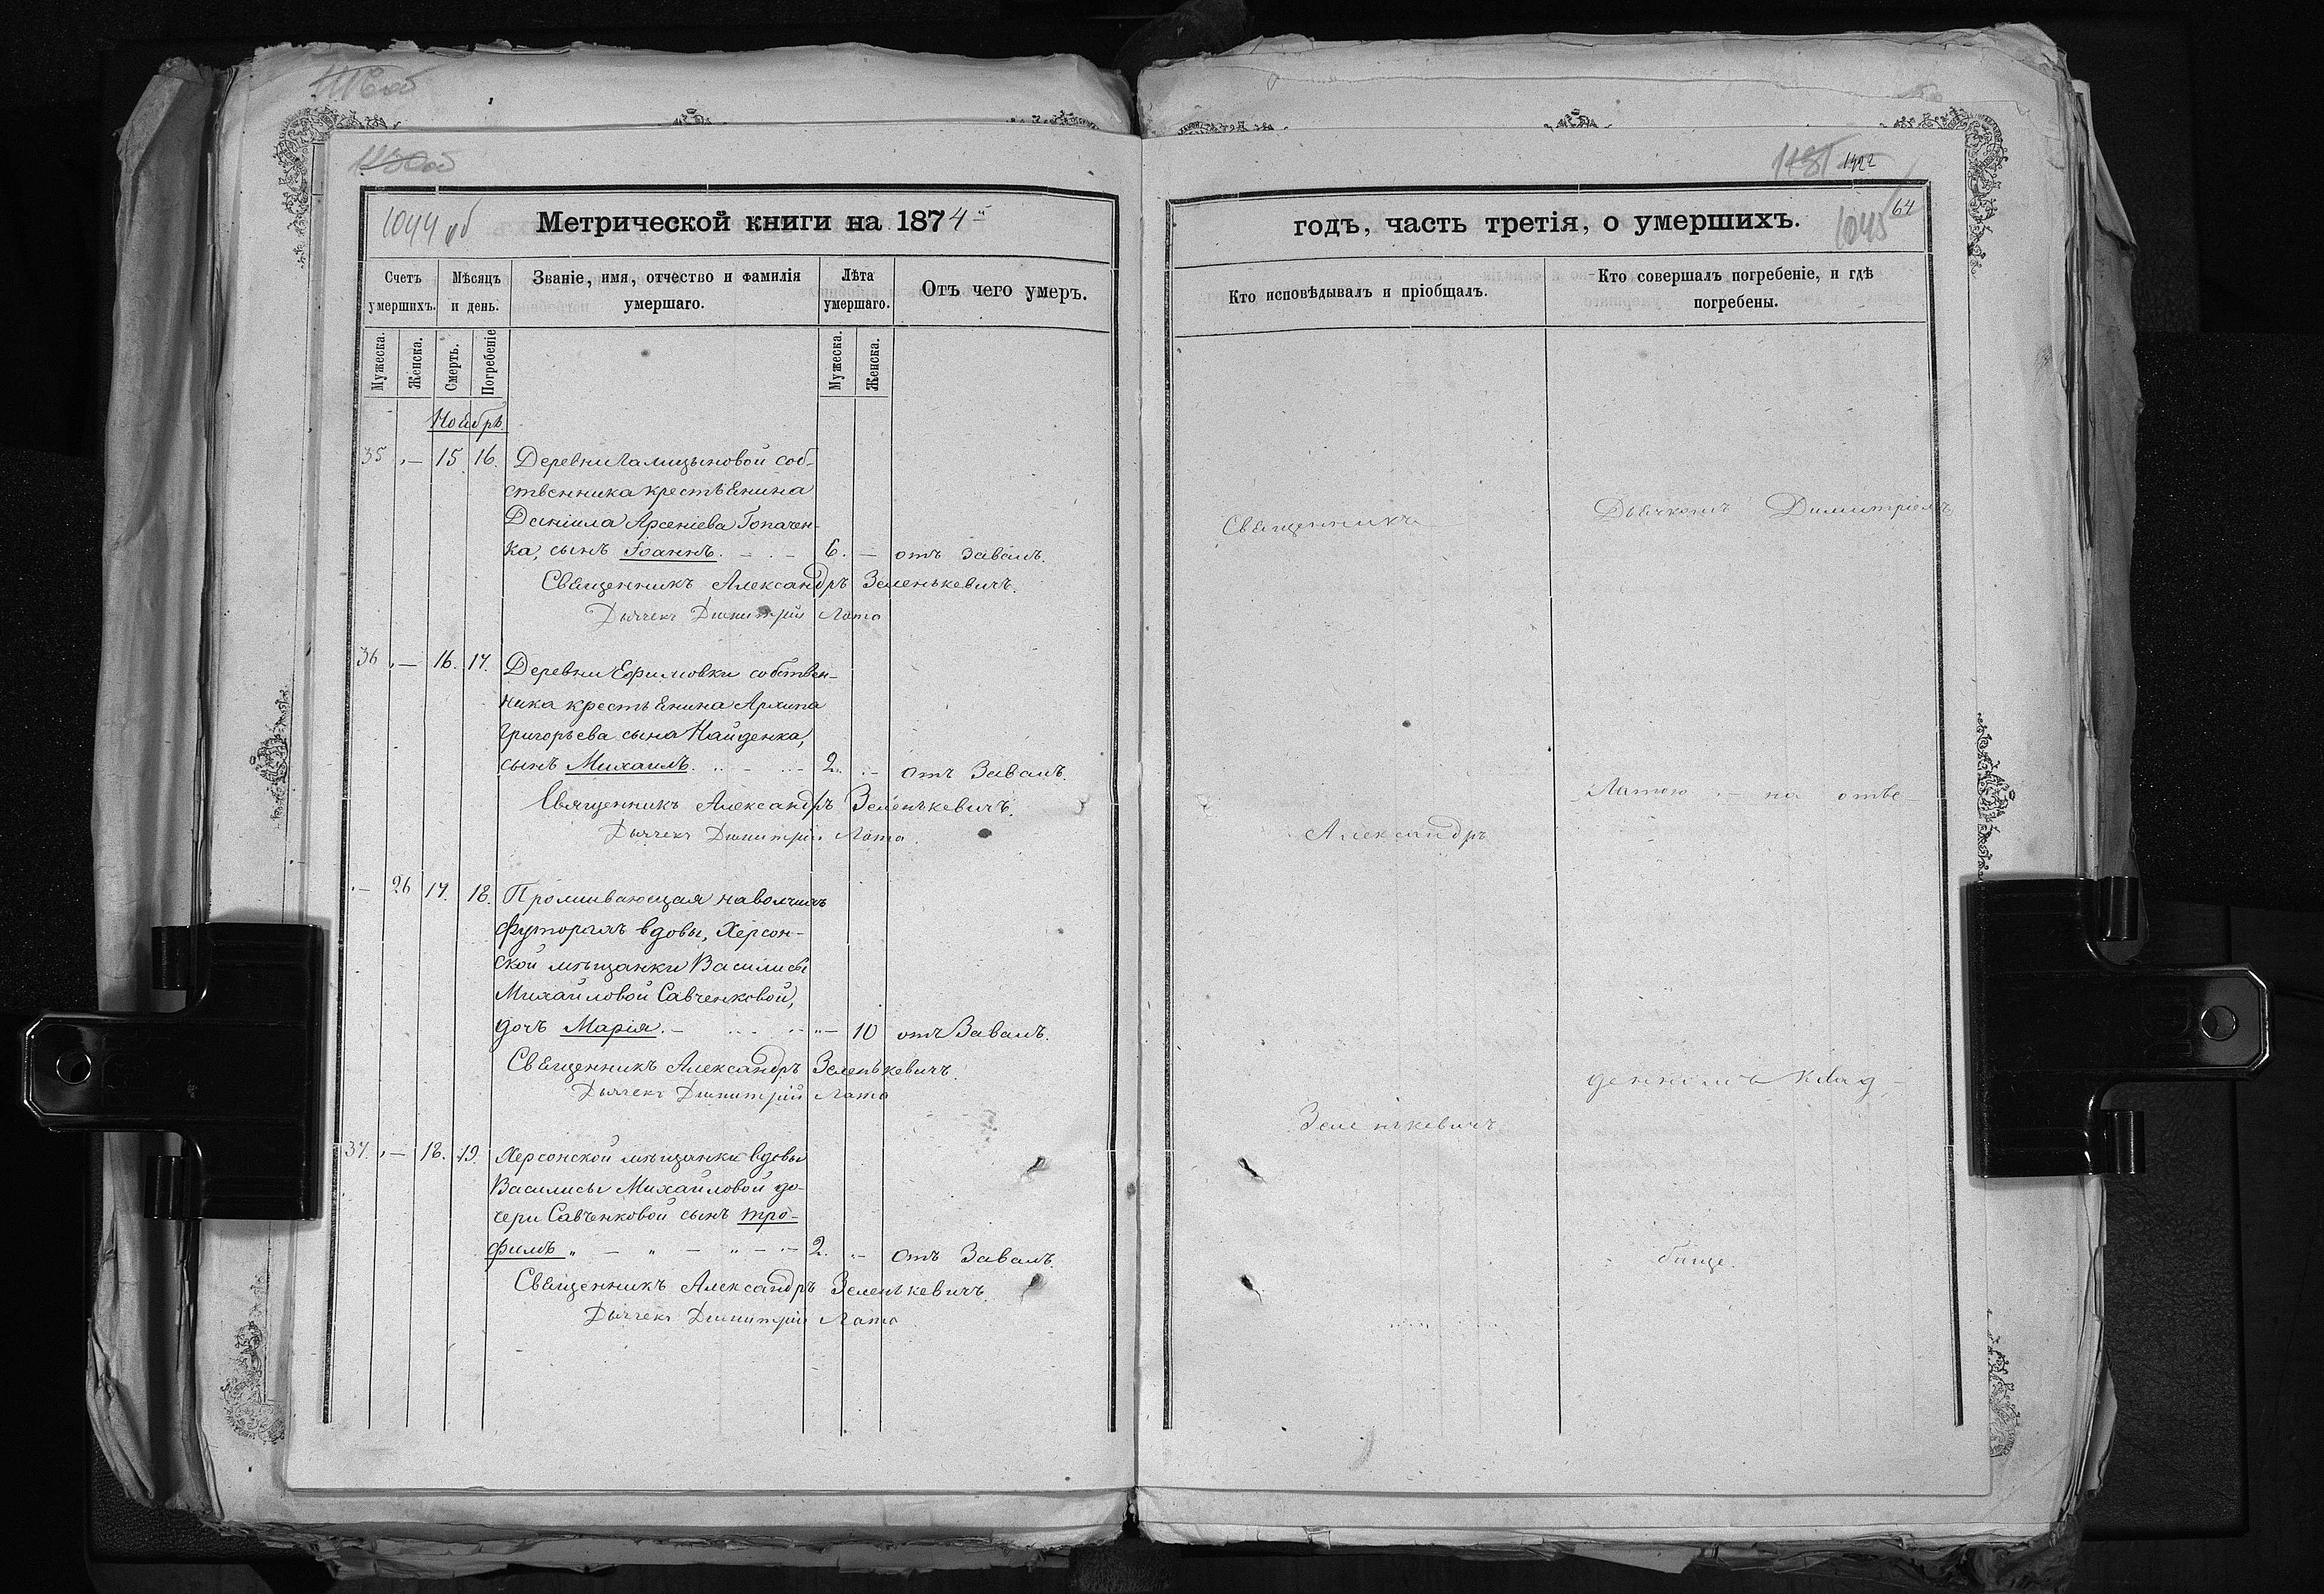 1044 об
Метрической книги на 1874
Счетъ умершихъ.
Мѣсяцъ и день.
Званіе, имя, отчество и фамилія умершаго.
Лѣта умершаго.
Отъ чего умеръ.
Мужеска.
Женска.
Смерть.
Погребеніе
Мужеска.
Женска.
Ноябрь.
35 „— 15. 16. Деревни Галицыновой соб-
ственника крестьянина
Даніила Арсеніева
ка, сынъ Іоаннъ. — 6. — отъ завалъ.
Священникъ Александръ Зеленькевичъ.
Дьячекъ Димитрій Лата
36 „— 16. 17. Деревни Ефимовки собствен-
ника крестьянина Архипа
Григорьева сына Найденка,
сынъ Михаилъ. 2. „— отъ Завалъ.
Священникъ Александръ Зеленькевичъ.
Дьячекъ Димитрій Лата.
„— 26 17. 18. Проживающая на
футорахъ вдовы, Херсон-
ской мѣщанки Василисы
Михайловой Савченковой,
дочь Марія. — „— 10 отъ Завалъ.
Священникъ Александръ Зеленькевичъ.
Дьячекъ Димитрій Лата
37. „— 18. 19. Херсонской мѣщанки вдовы
Василисы Михайловой до-
чери Савченковой сынъ Тро-
фимъ „ — „ — „ — 2. „— отъ Завалъ.
Священникъ Александръ Зеленькевичъ.
Дьячекъ Димитрій Лата
1192
64
1045
годъ, часть третія, о умершихъ.
Кто исповѣдывалъ и пріобщалъ.
Кто совершалъ погребеніе, и гдѣ погребены.
Священникъ
Александръ
Зеленькевичъ
Дьячкомъ Димитріемъ
Латою на отве-
денномъ клад-
бище.